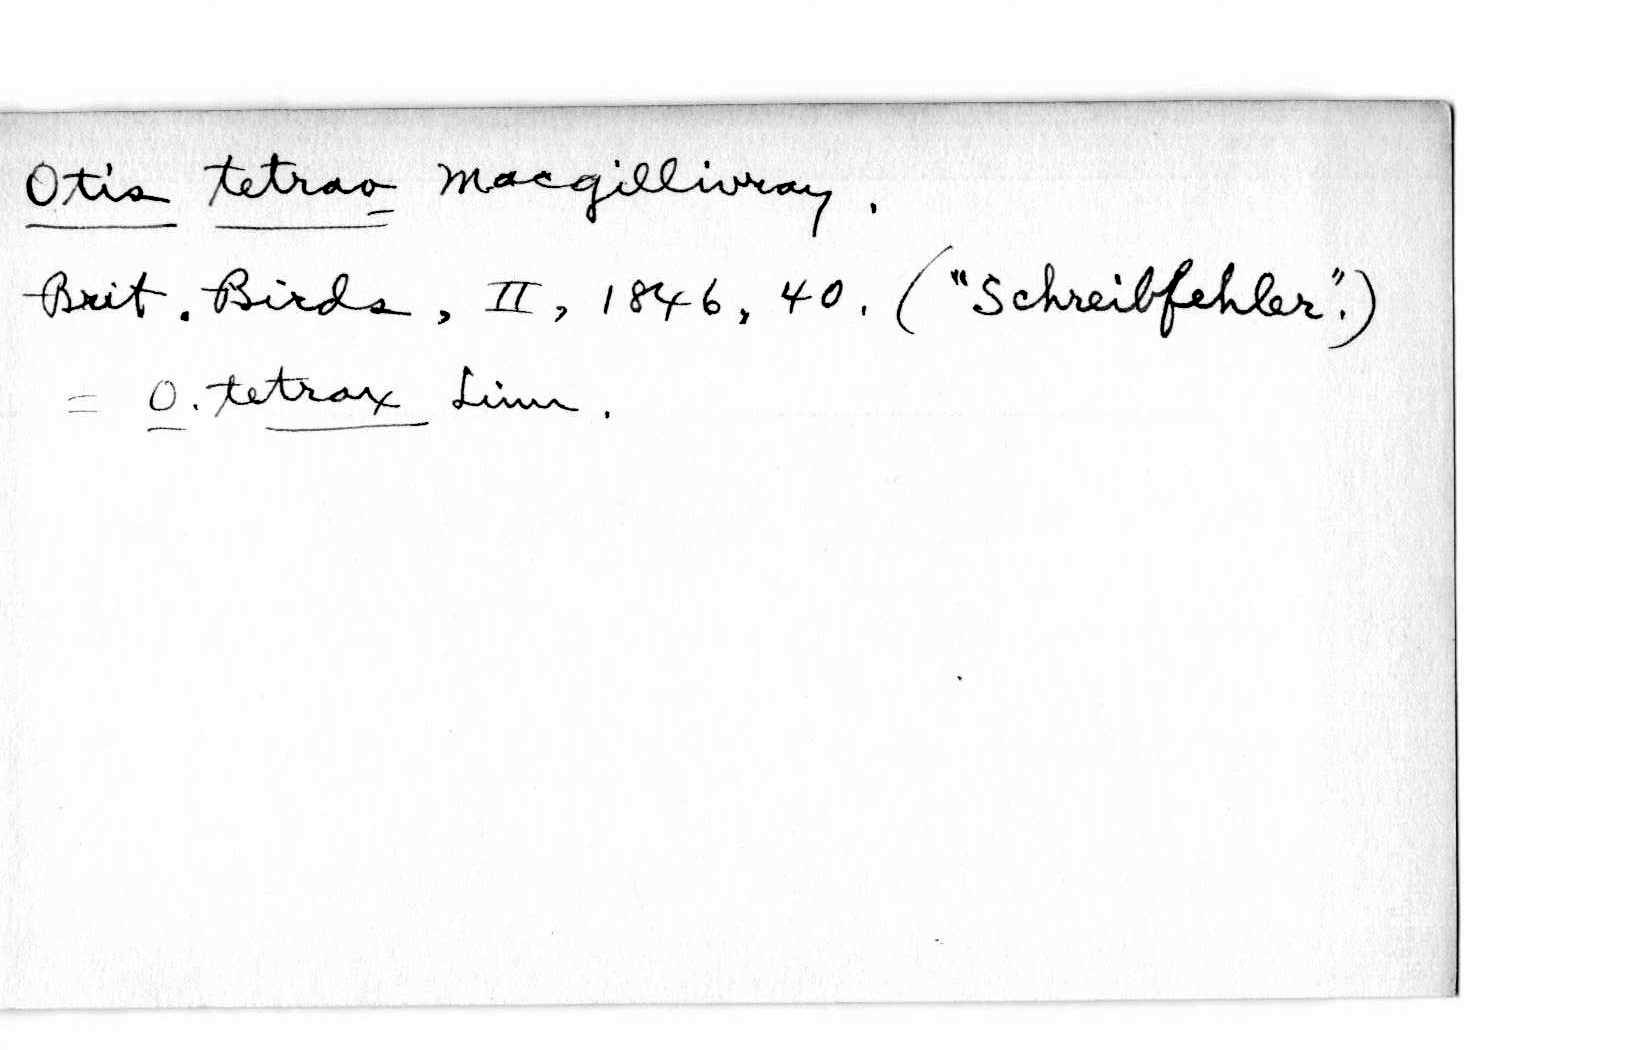 Otis tetrao Macgillivray.
Brit. Birds, II, 1846, 40. ("Schreibfehler".)
= O. tetrax Linn.